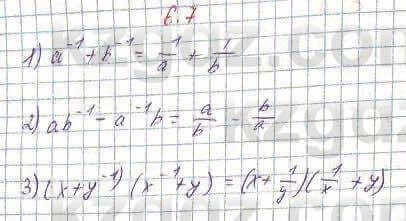 6.7
1) a⁻¹ + b⁻¹ = 1/a + 1/b
2) ab⁻¹ - a⁻¹b = a/b - b/a
3) (x+y⁻¹) (x⁻¹+y) = (x + 1/y)(1/x + y)